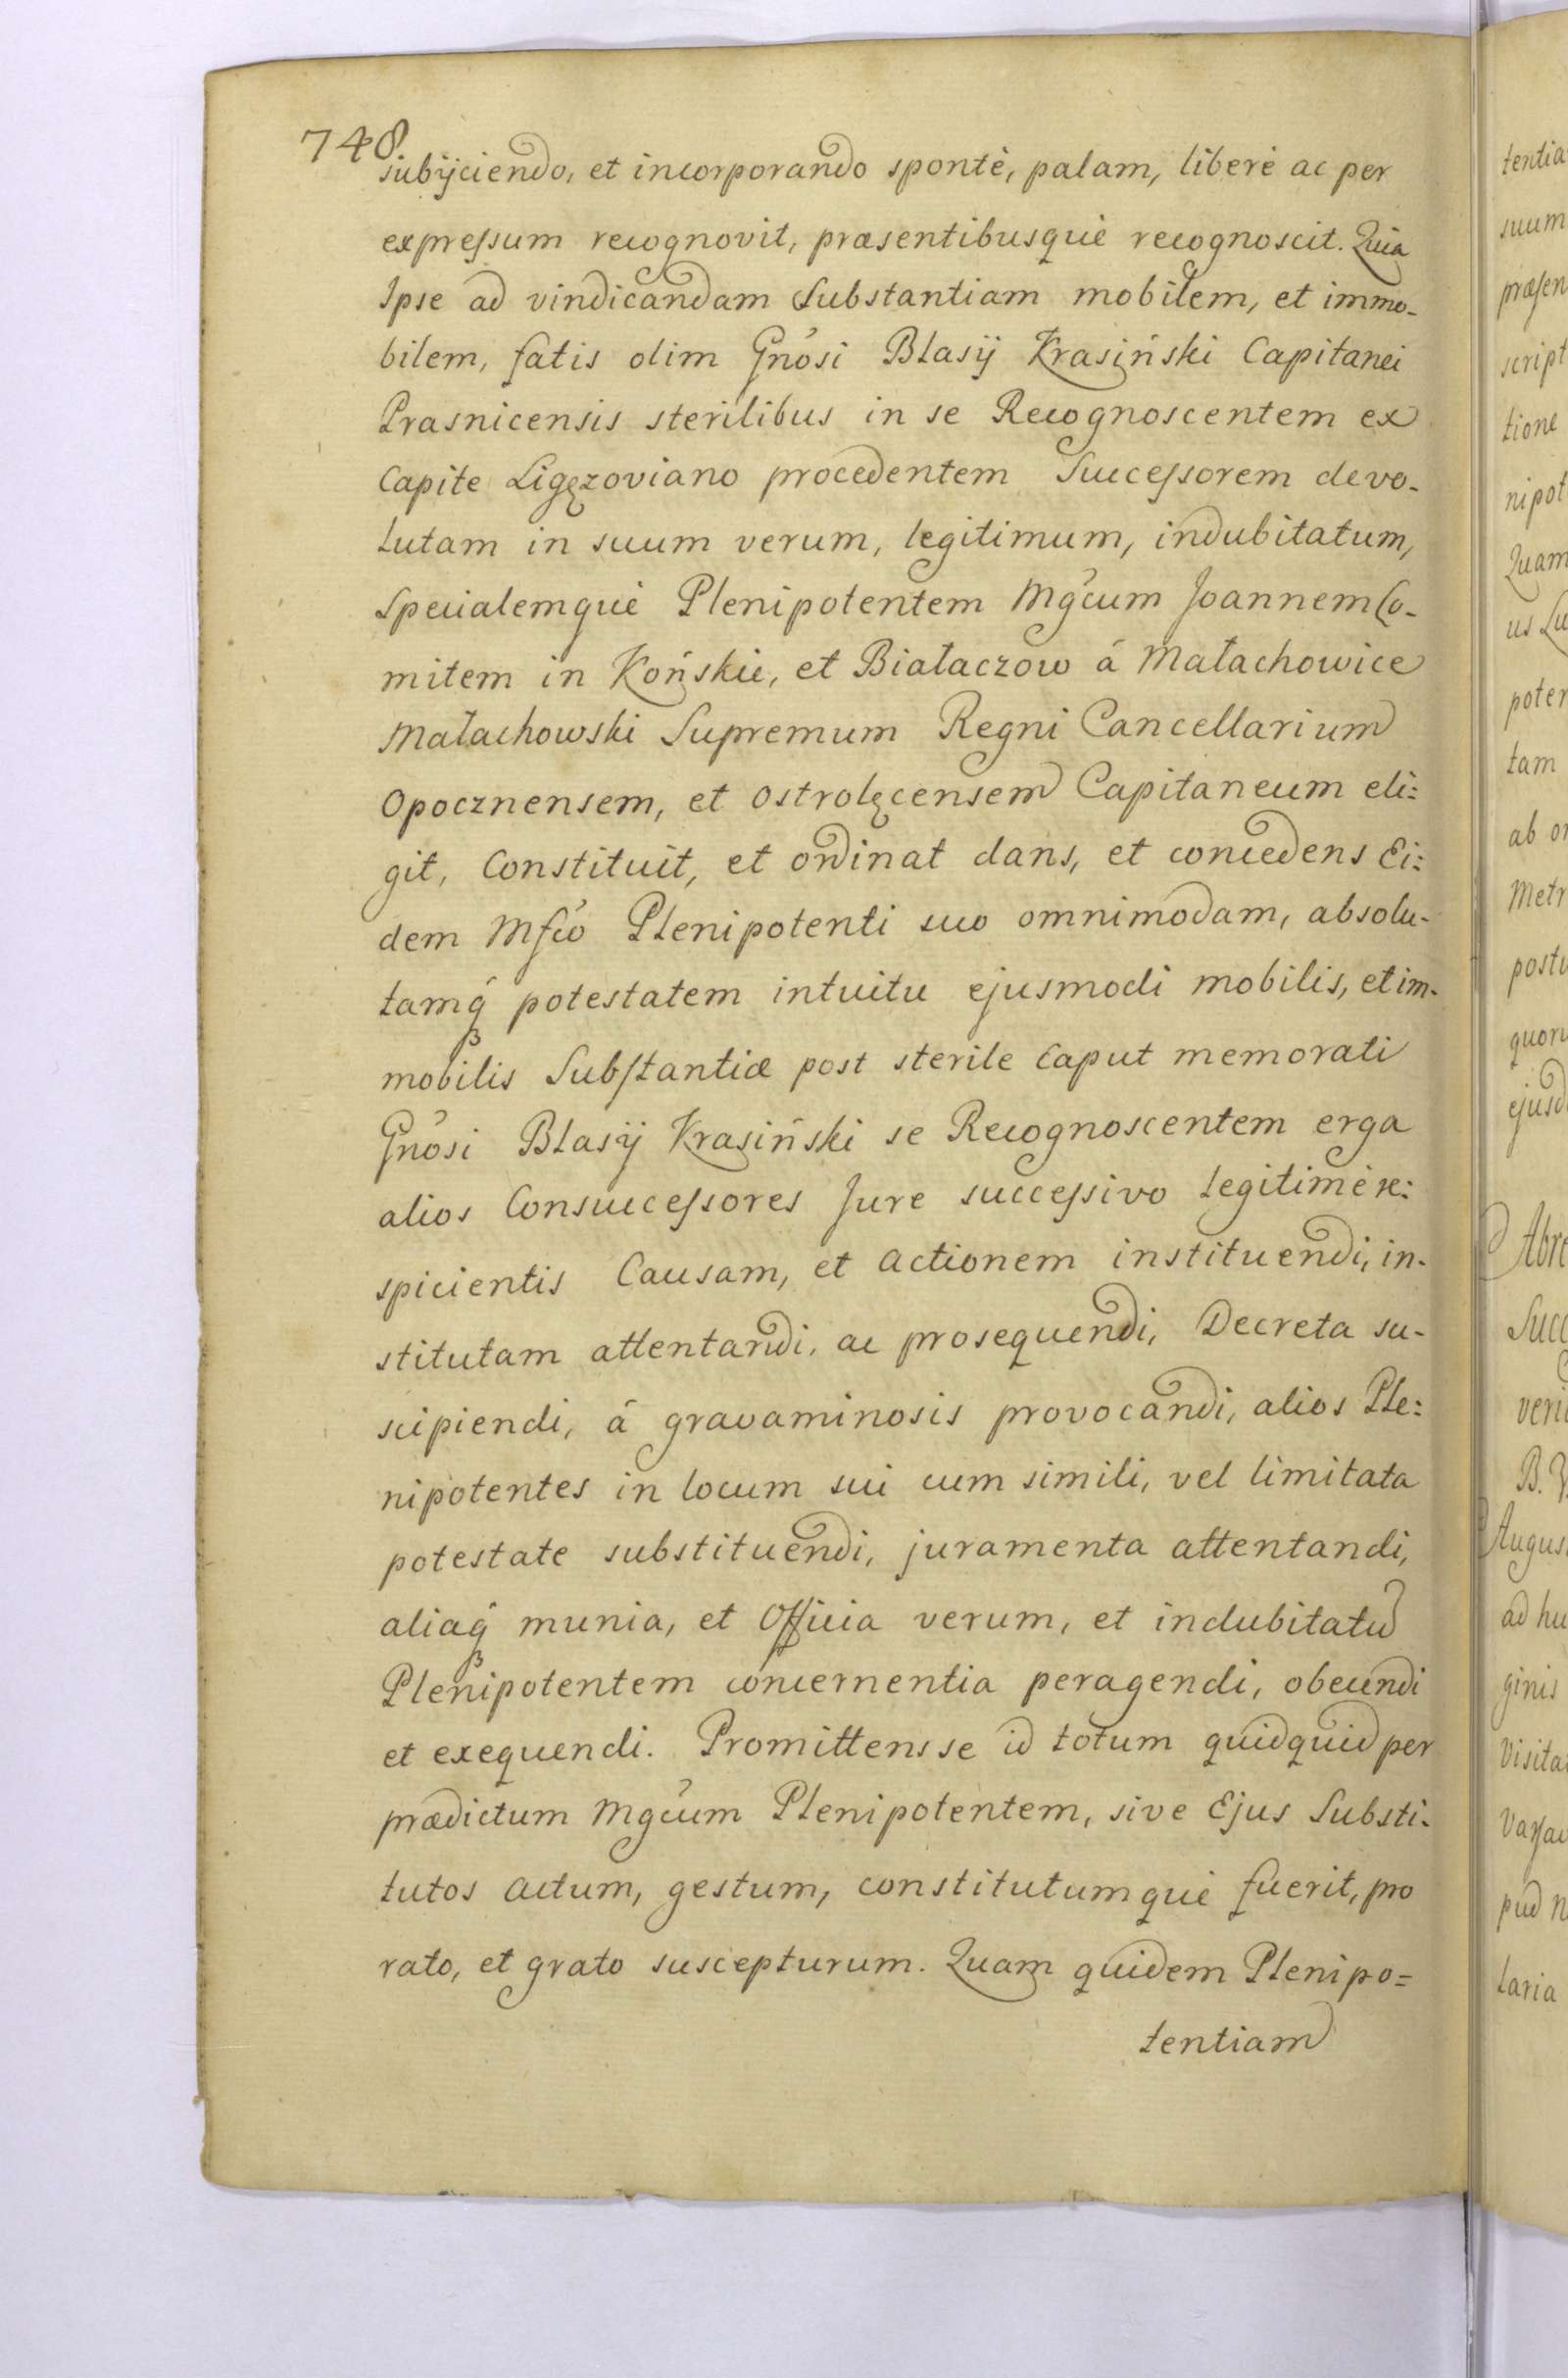 748
subijciendo, et incorporando spontè, palam, liberè ac per
expressum recognovit, praesentibusquè recognoscit. Quia
Ipse ad vindicandam Substantiam mobilem, et immo-
bilem, fatis olim Gnosi Blasij Krasiński Capitanei
Prasnicensis sterilibus in se Recognoscentem ex
Capite Ligęzoviano procedentem Successorem devo-
lutam in suum verum, legitimum, indubitatum,
Specialemquè Plenipotentem Mgcum Joannem Co-
mitem in Końskie, et Białaczow á Małachowice
Małachowski Supremum Regni Cancellarium
Opocznensem, et Ostrolęcensem Capitaneum eli:
git, Constituit, et ordinat dans, et concedens Ei:
dem Mfco Plenipotenti suo omnimodam, absolu-
tamq́ potestatem intuitu ejusmodi mobilis, et im-
mobilis Substantiæ post sterile Caput memorati
Gnosi Blasij Krasiński se Recognoscentem erga
alios Consuccessores Jure successivo legitimè re:
spicientis Causam, et actionem instituendi, in-
stitutam attentandi, ac prosequendi, Decreta su-
scipiendi, á gravaminosis provocandi, alios Ple:
nipotentes in locum sui cum simili, vel limitata
potestate substituendi, juramenta attentandi,
aliaq́ munia, et Officia verum, et indubitatū
Plenipotentem concernentia peragendi, obeundi
et exequendi. Promittens se id totum quidquid per
prædictum Mgcum Plenipotentem, sive Ejus Substi-
tutos actum, gestum, constitutumquè fuerit, pro
rato, et grato suscepturum. Quam quidem Plenipo=
tentiam
tentia
suum
præsen
script
tione
nipot
Quam
us Lu
poter
tam
ab o
Metr
postu
quor
ejusd
Abre
Succ
veri
B. V
Augus
ad hu
ginis
Visita
Varsav
pud n
laria